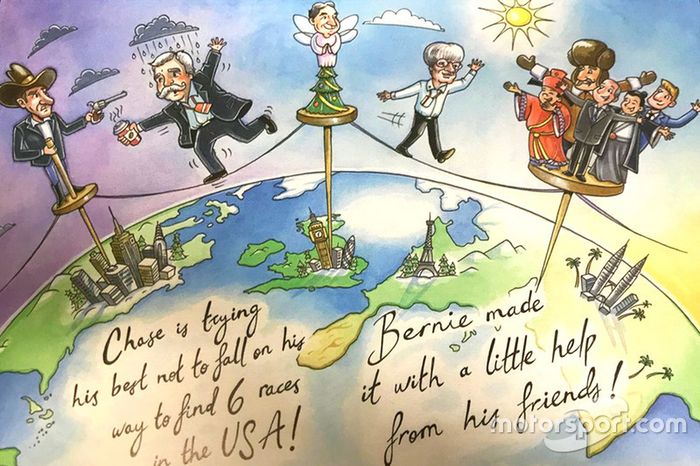 Chase is trying
his best not to fall on his
way to find 6 races
in the USA!
Bernie made
it with a little help
from his friends!
motorsport.com